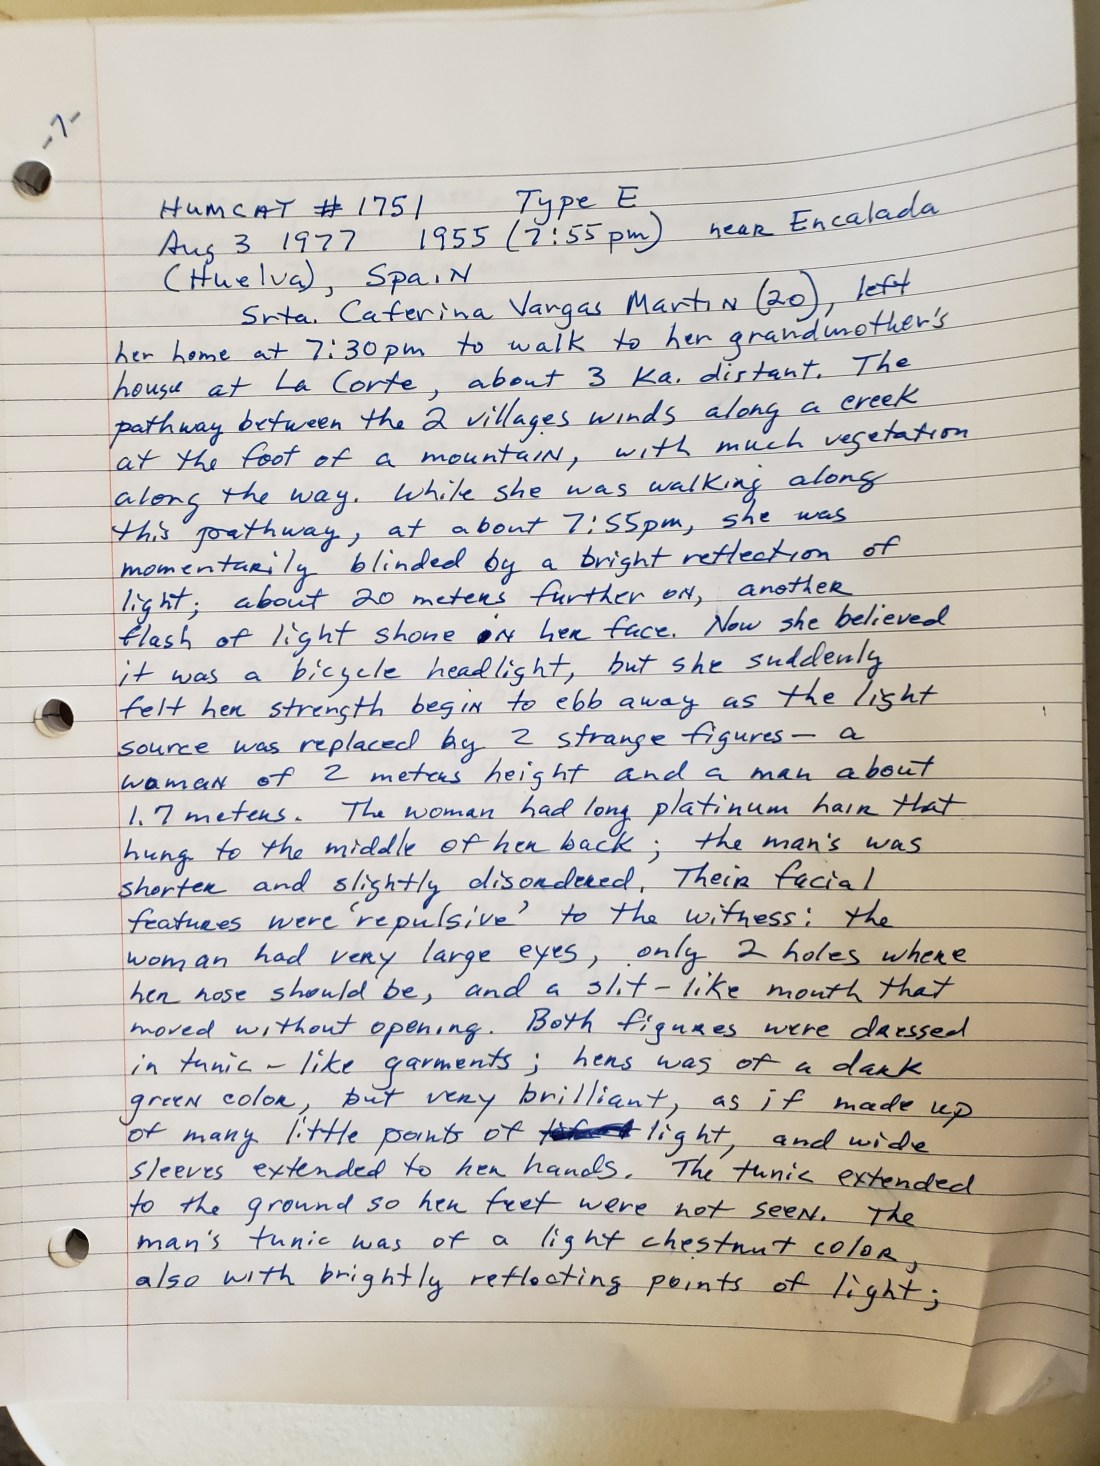 -7-
HUMCAT # 1751 Type E
Aug 3 1977 1955 (7:55 pm) near Encalada
(Huelva), Spain
Srta. Caterina Vargas Martin (20), left
her home at 7:30 pm to walk to her grandmother's
house at La Corte, about 3 Km. distant. The
pathway between the 2 villages winds along a creek
at the foot of a mountain, with much vegetation
along the way. While she was walking along
this pathway, at about 7:55pm, she was
momentarily blinded by a bright reflection of
light; about 20 meters further on, another
flash of light shone on her face. Now she believed
it was a bicycle headlight, but she suddenly
felt her strength begin to ebb away as the light
source was replaced by 2 strange figures — a
woman of 2 meters height and a man about
1.7 meters. The woman had long platinum hair that
hung to the middle of her back; the man's was
shorter and slightly disordered. Their facial
features were 'repulsive' to the witness: the
woman had very large eyes, only 2 holes where
her nose should be, and a slit-like mouth that
moved without opening. Both figures were dressed
in tunic-like garments; hers was of a dark
green color, but very brilliant, as if made up
of many little points of light, and wide
sleeves extended to her hands. The tunic extended
to the ground so her feet were not seen. The
man's tunic was of a light chestnut color,
also with brightly reflecting points of light;